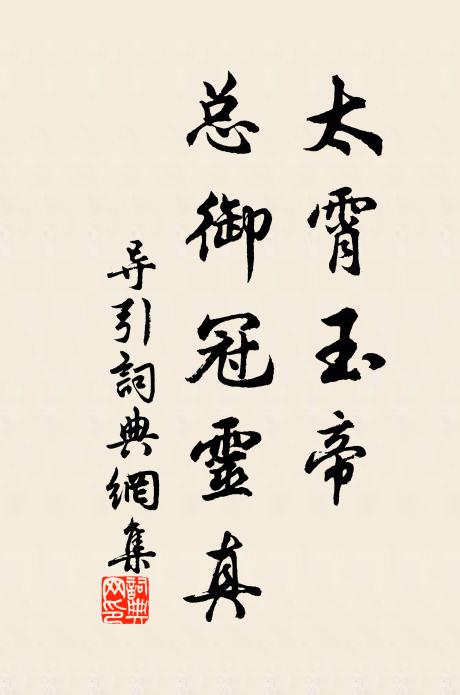 太霄玉帝
总御冠靈真
导引詞典網集
詞典网印